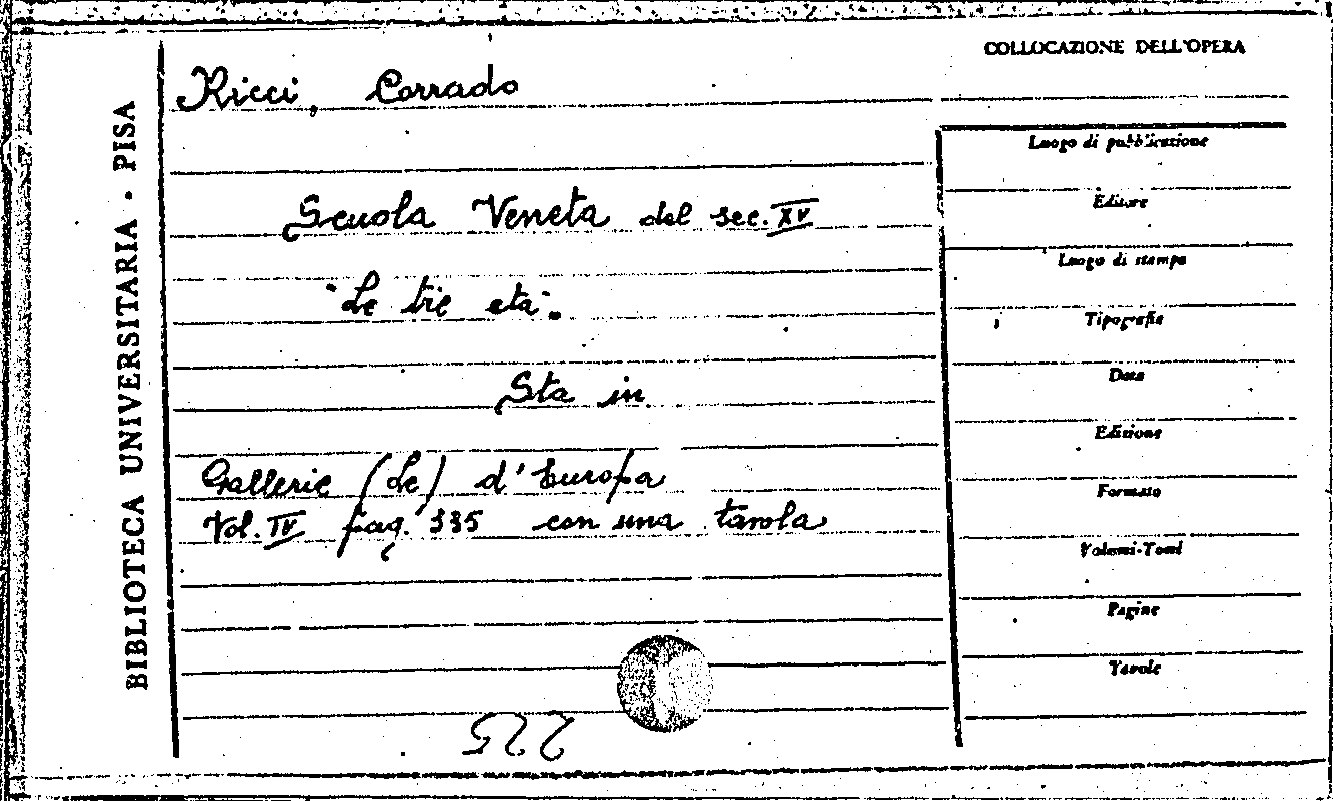 COLLOCAZIONE DELL'OPERA
Ricci, Corrado
BIBLIOTECA UNIVERSITARIA · PISA
Scuola Veneta del sec. XV
"Le tre età".
Sta in
Gallerie (Le) d'Europa
Vol. IV pag. 335 con una tavola
Luogo di pubblicazione
Editore
Luogo di stampa
Tipografia
Data
Edizione
Formato
Volumi-Tomi
Pagine
Tavole